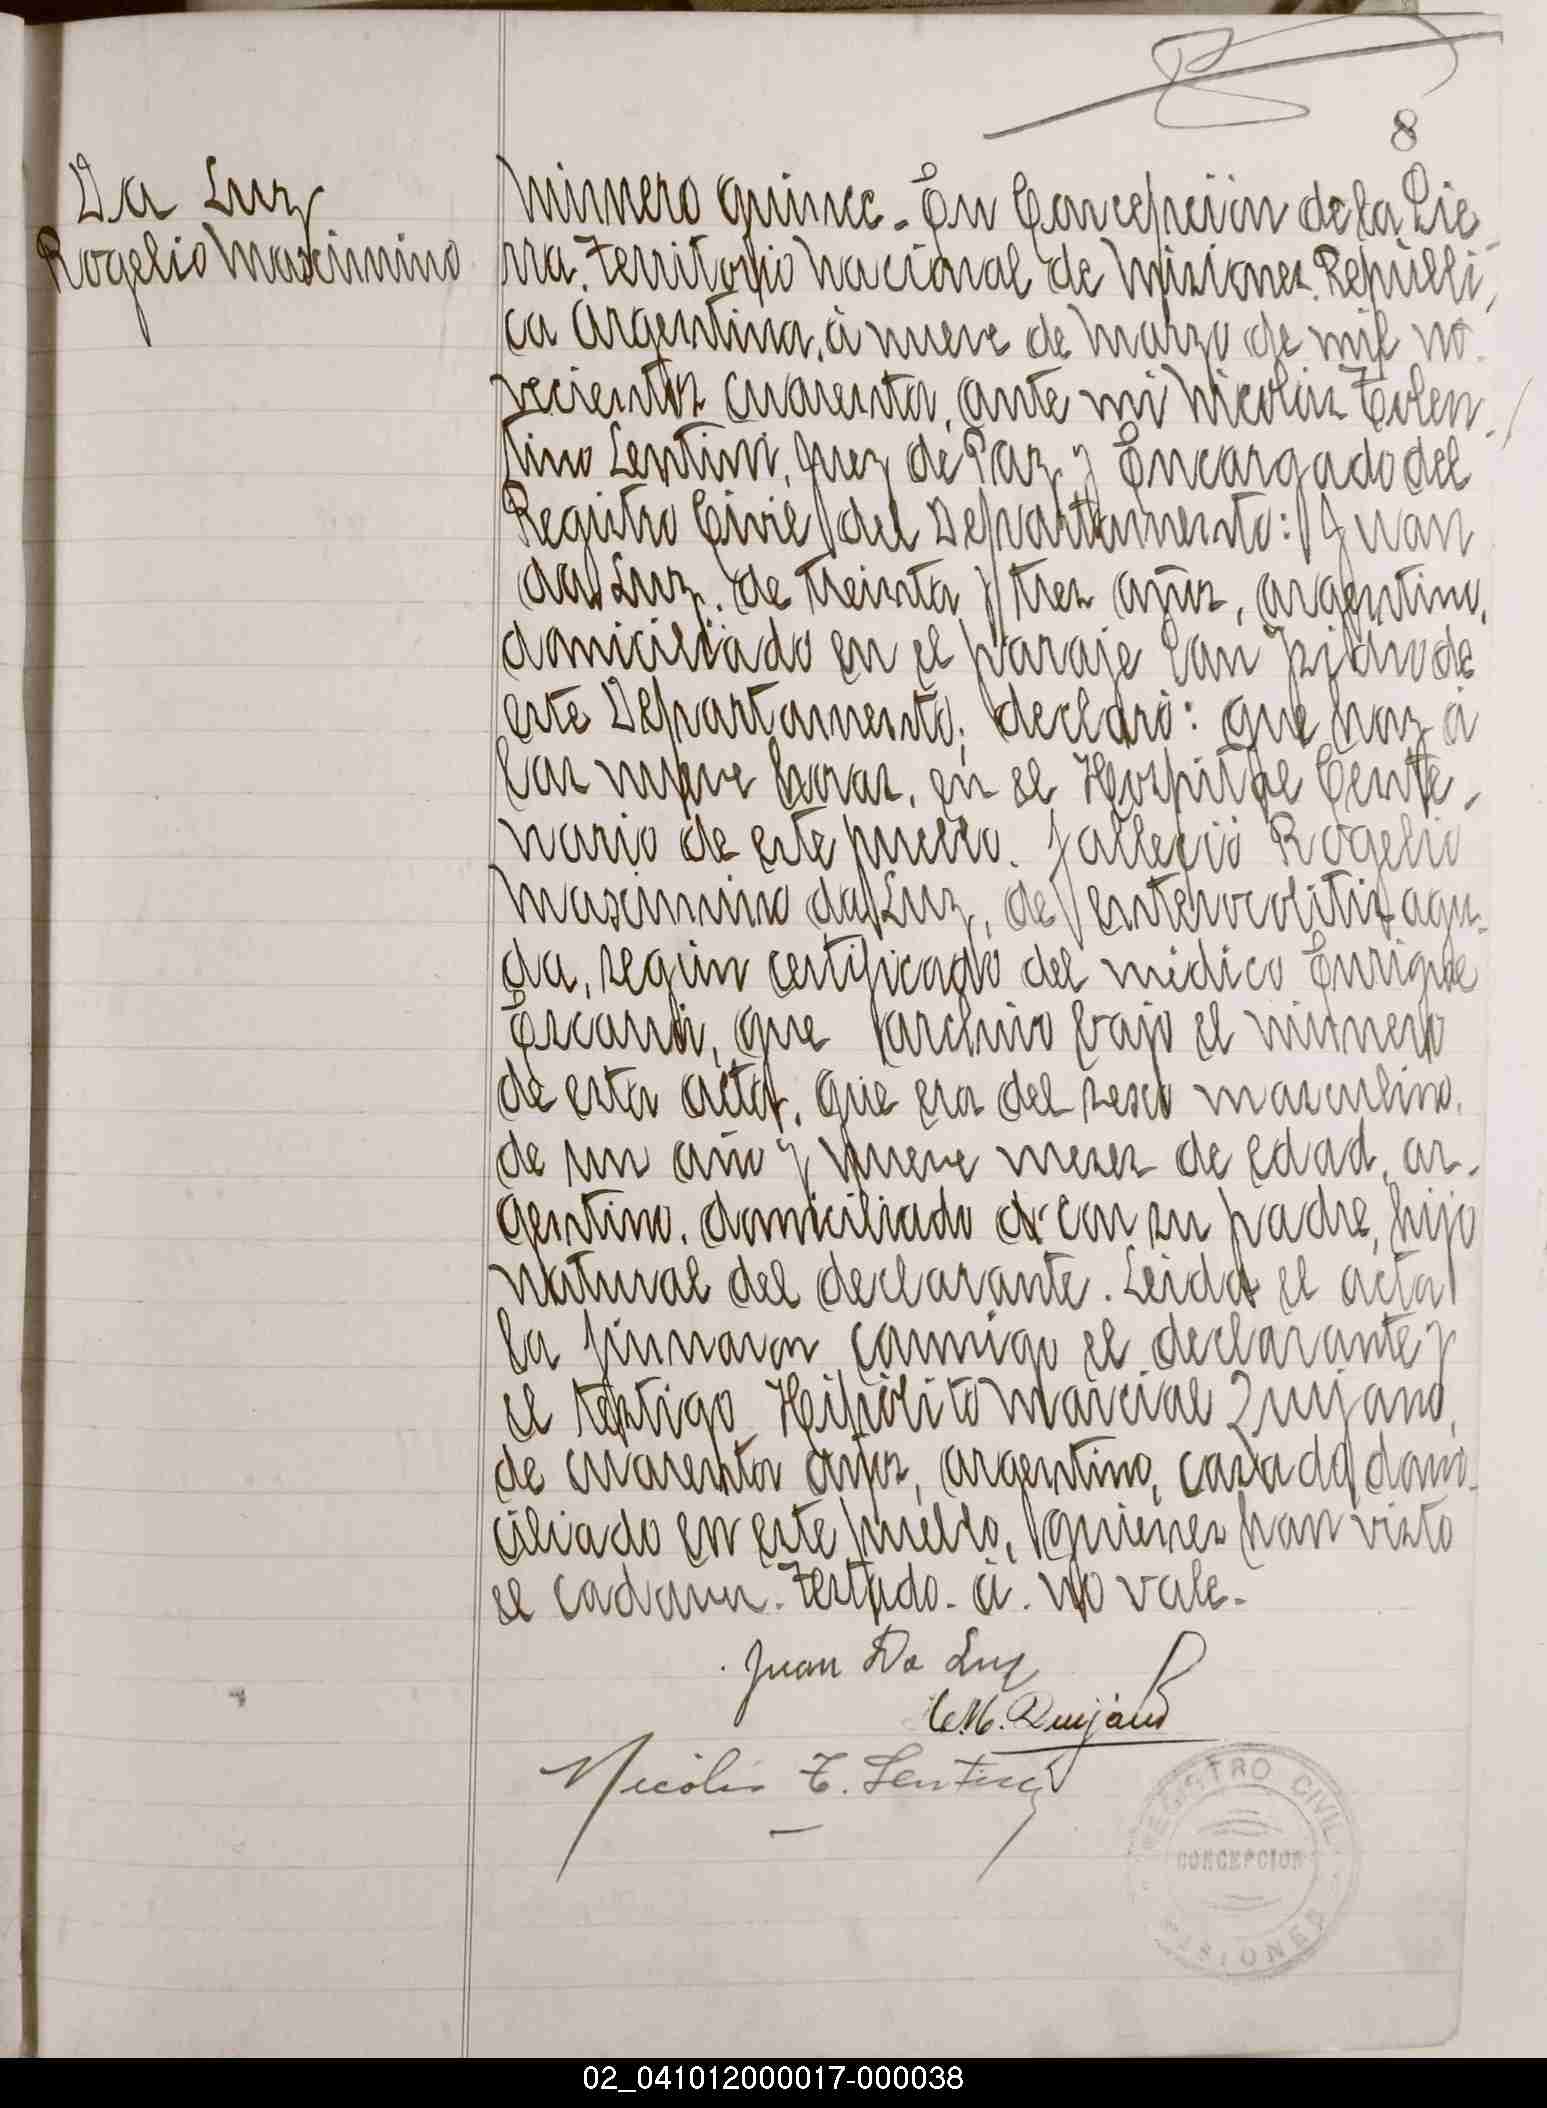 8
Da Luz
Rogelio Maximino
Número quince. En Concepción de la Sie-
rra, Territorio Nacional de Misiones, Repúbli-
ca Argentina, á nueve de Marzo de mil no-
vecientos cuarenta, ante mi Nicolás Tolen-
tino Lentini, Juez de Paz y Encargado del
Registro Civil del Departamento: Juan
da Luz, de treinta y tres años, argentino,
domiciliado en el paraje San Isidro de
este Departamento, declaró: que hoy á
las nueve horas, en el Hospital Cente-
nario de este pueblo, falleció Rogelio
Maximino da Luz, de enterocolitis agu-
da, según certificado del médico Enrique
que archivo bajo el número
de esta acta, que era del sexo masculino,
de un año y nueve meses de edad, ar-
gentino, domiciliado con su padre, hijo
natural del declarante. Leida el acta
la firmaron conmigo el declarante y
el testigo Hipólito Marcial Quijano,
de cuarenta años, argentino, casado, domi-
ciliado en este pueblo, quienes han visto
el cadaver. Testado. á. no vale.
Juan Da Luz
H.M. Quijano
Nicolás T. Lentini
REGISTRO CIVIL
CONCEPCION
MISIONES
02_041012000017-000038